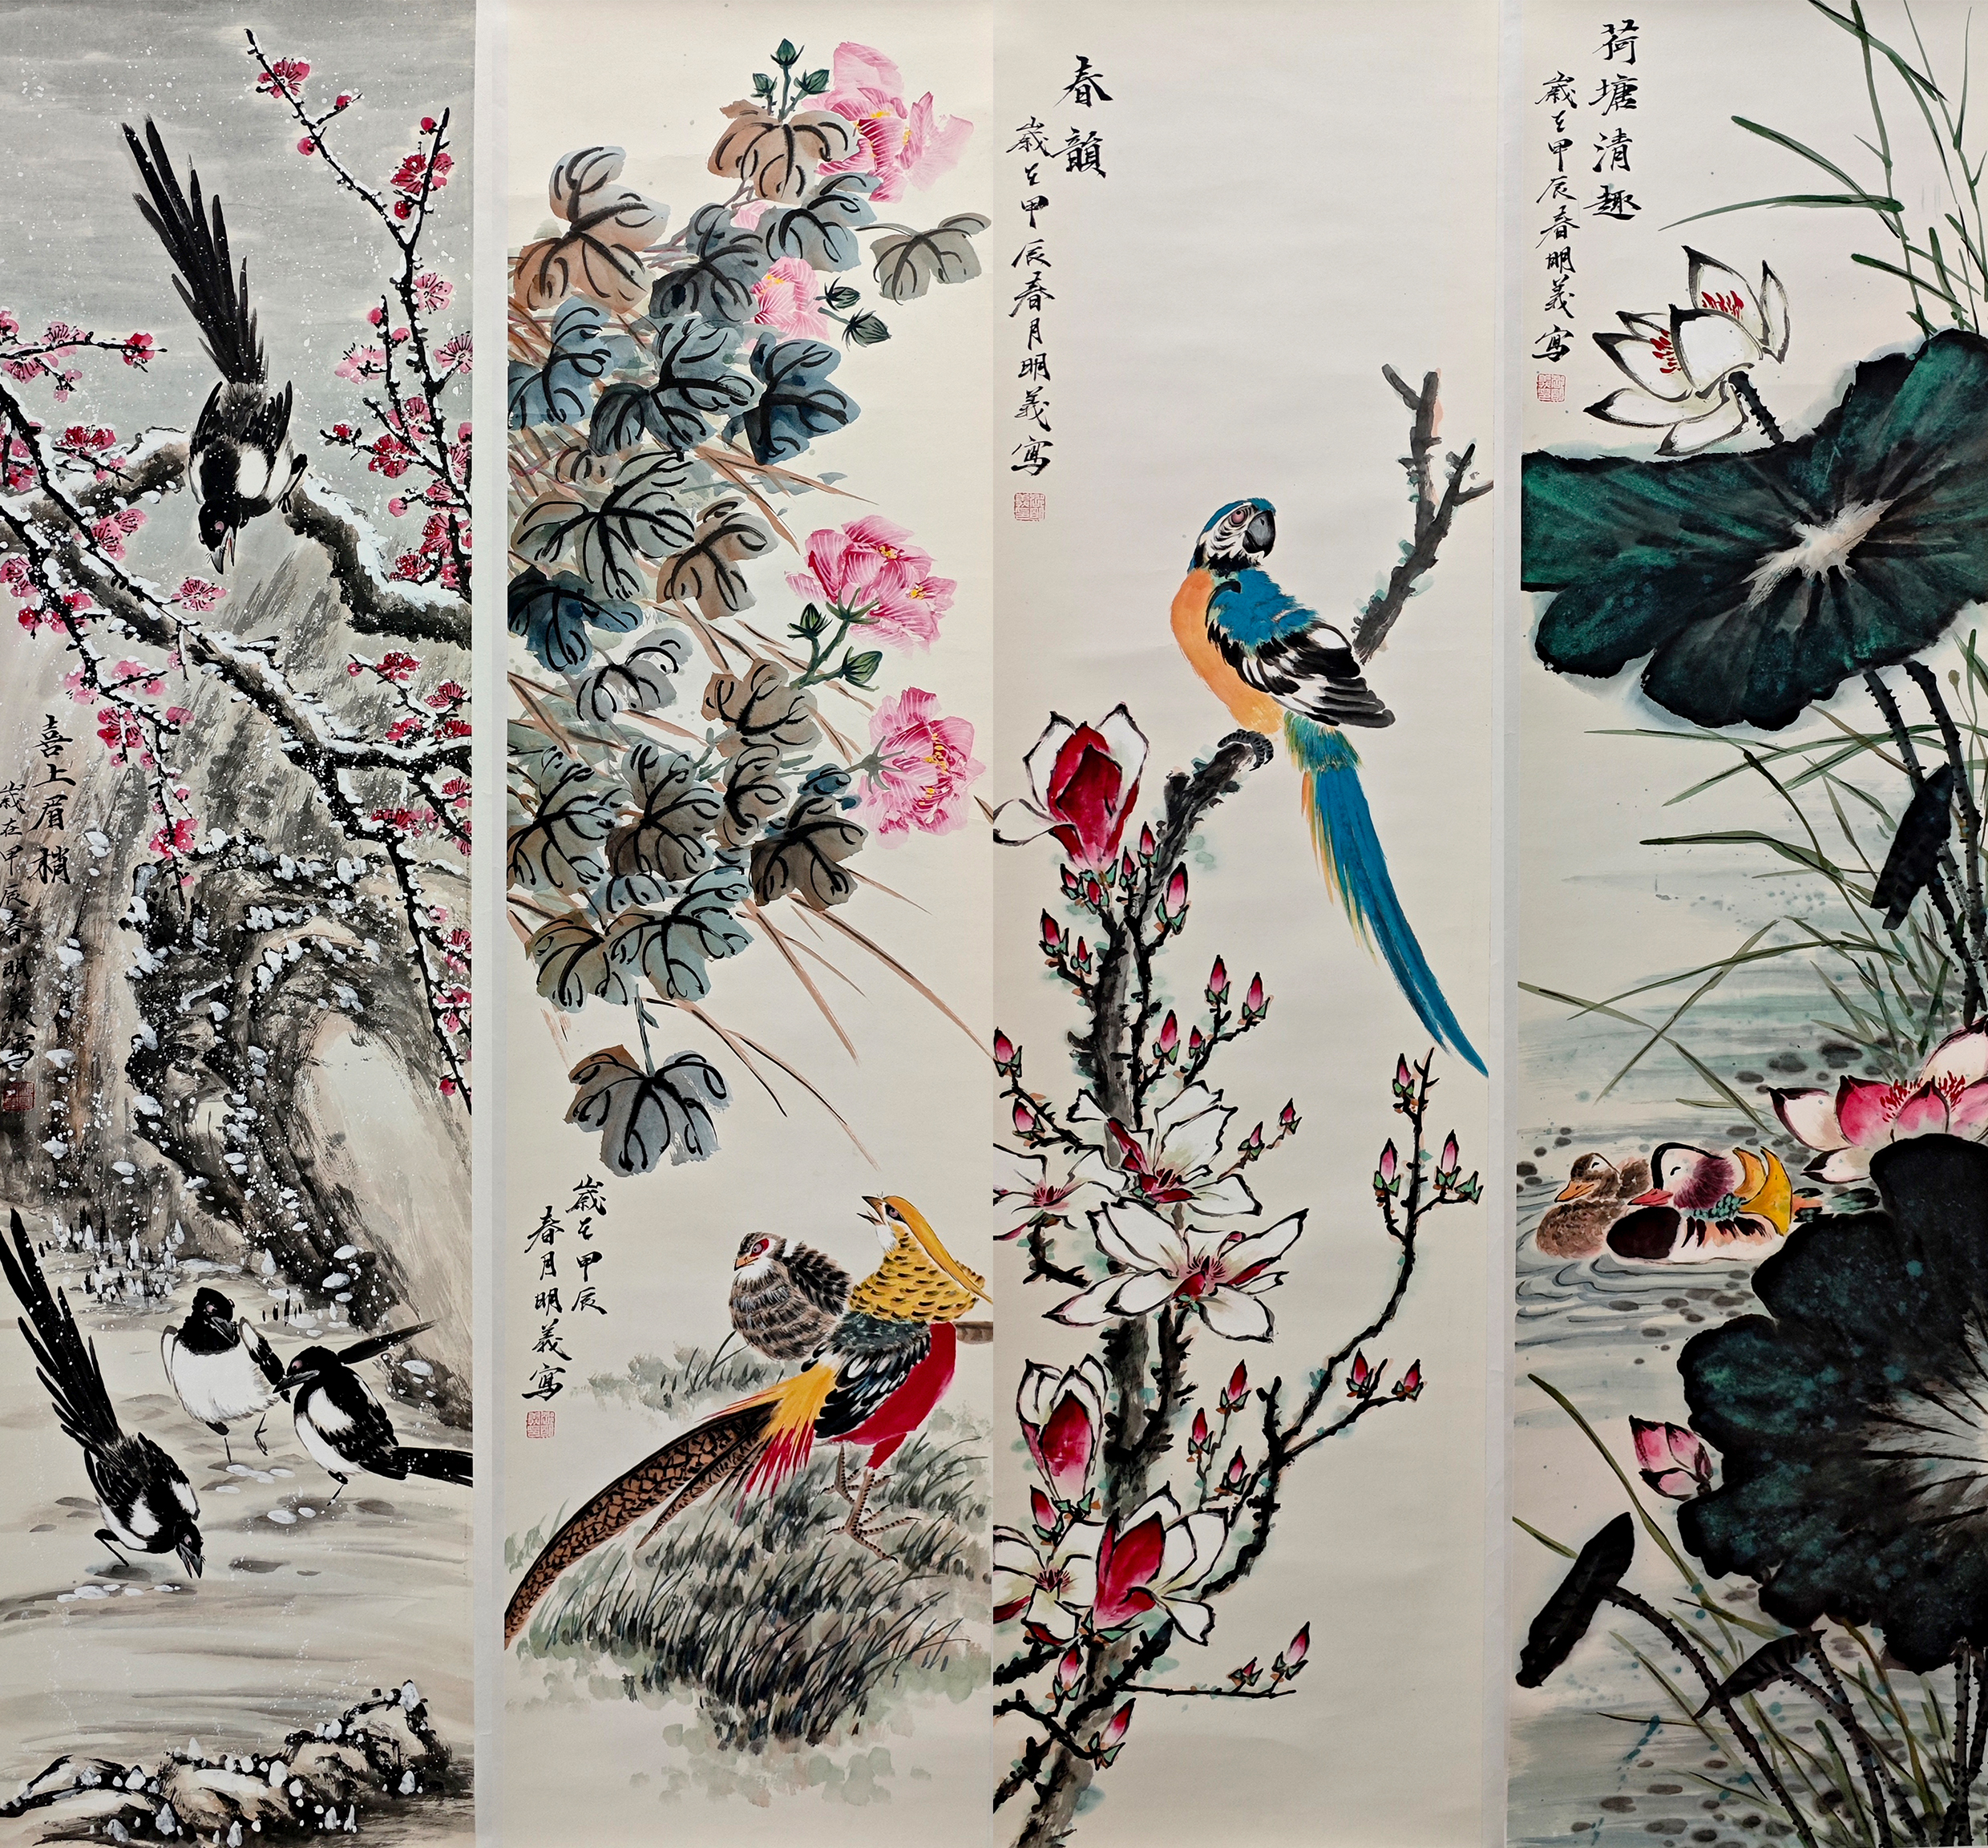 喜上眉梢
歲在甲辰春明義寫
歲在甲辰
春月明義寫
春韻
歲在甲辰春月明義寫
荷塘清趣
歲在甲辰春明義寫